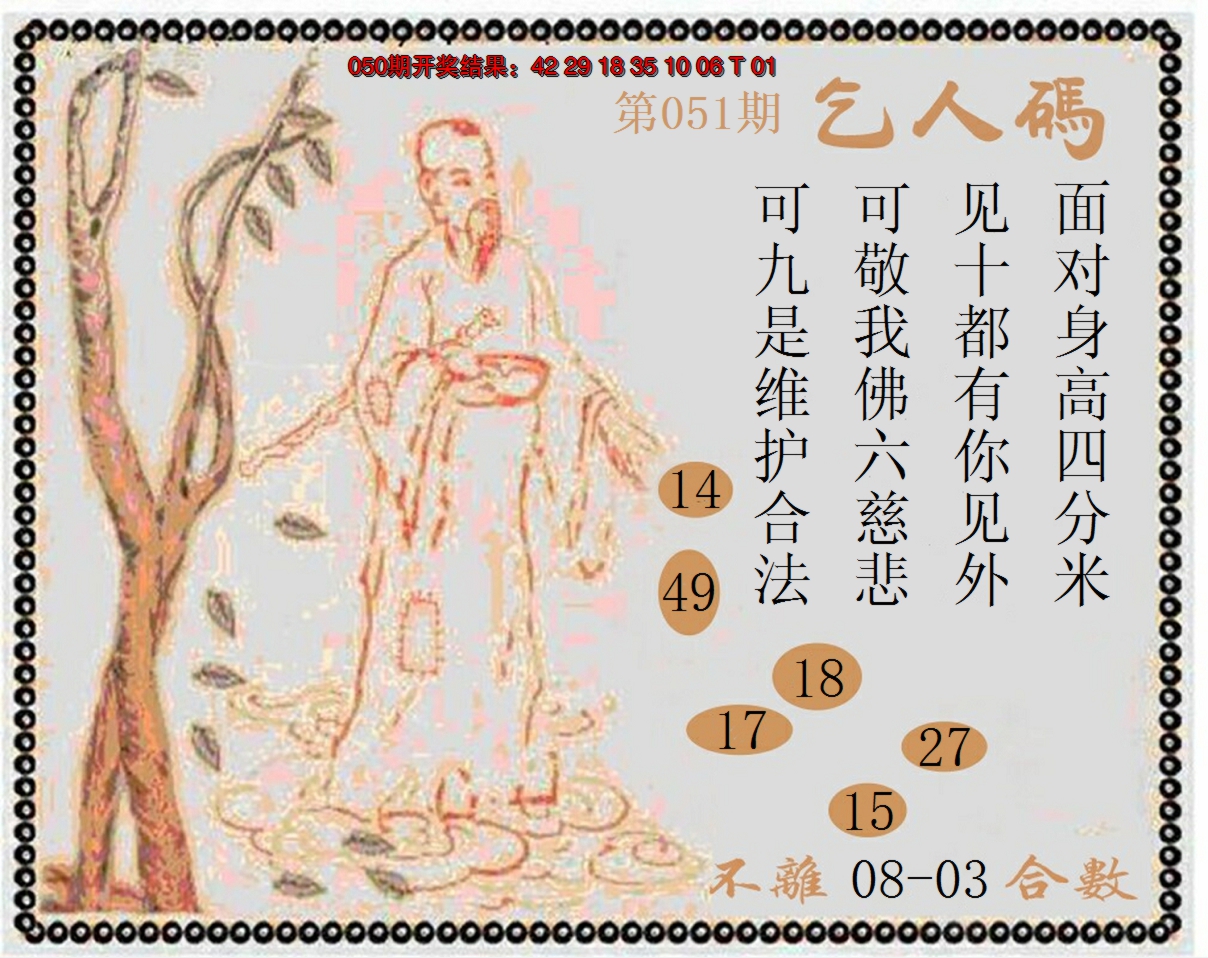 050期开奖结果：42 29 18 35 10 06 T 01
第051期
乞人碼
面对身高四分米
见十都有你见外
可敬我佛六慈悲
可九是维护合法
14
49
18
17
27
15
不離 08-03 合數